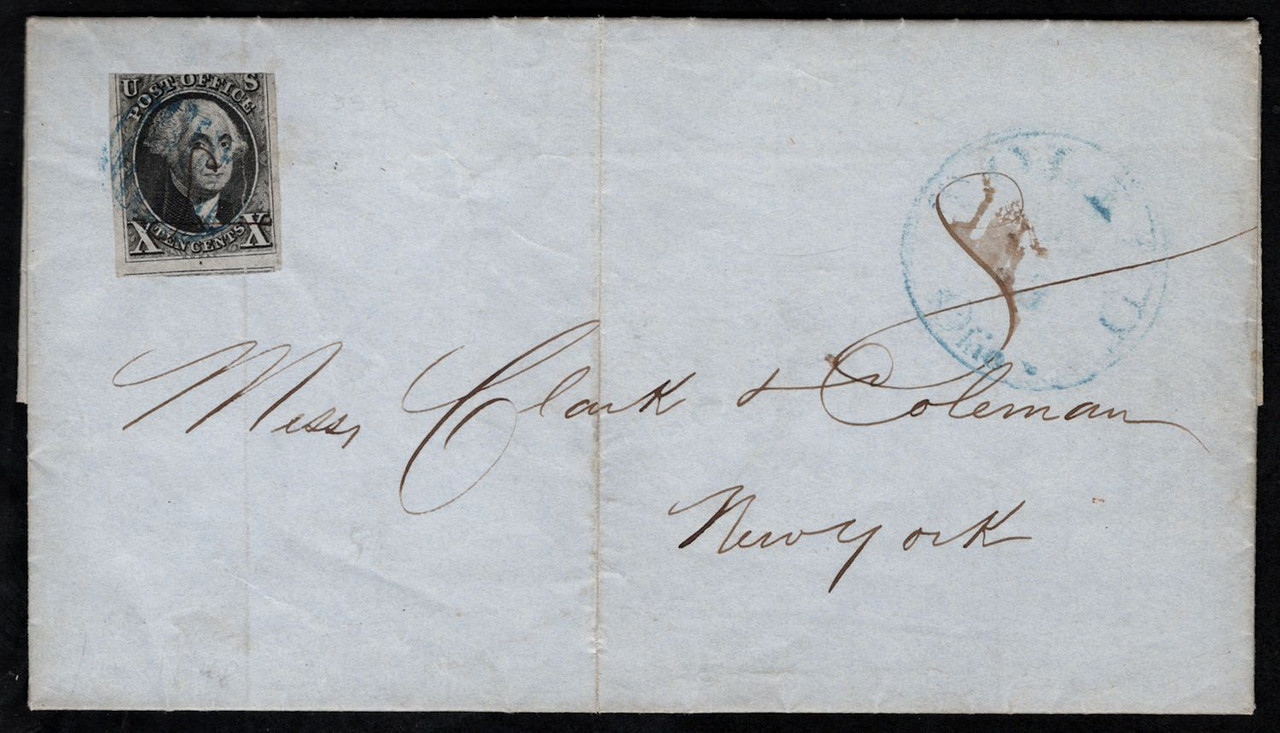 U S
POST OFFICE
X TEN CENTS X
Mess, Clark & Coleman
New York